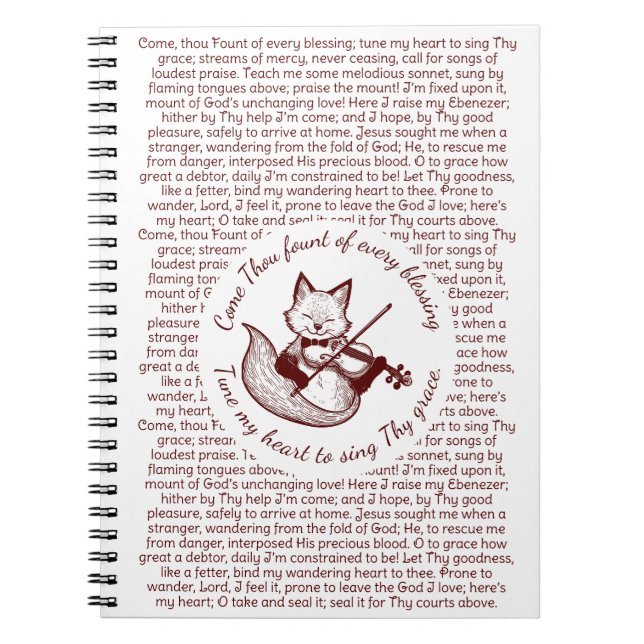 Come, thou Fount of every blessing; tune my heart to sing Thy
grace; streams of mercy, never ceasing, call for songs of
loudest praise. Teach me some melodious sonnet, sung by
flaming tongues above; praise the mount! I'm fixed upon it,
mount of God's unchanging love! Here I raise my Ebenezer;
hither by Thy help I'm come; and I hope, by Thy good
pleasure, safely to arrive at home. Jesus sought me when a
stranger, wandering from the fold of God; He, to rescue me
from danger, interposed His precious blood. O to grace how
great a debtor, daily I'm constrained to be! Let Thy goodness,
like a fetter, bind my wandering heart to thee. Prone to
wander, Lord, I feel it, prone to leave the God I love; here's
my heart; O take and seal it; seal it for Thy courts above.
Come, thou Fount of every blessing; tune my heart to sing Thy
grace; streams call for songs of
loudest praise. sonnet, sung by
flaming tong fixed upon it,
mount of G Ebenezer;
hither by good
pleasure, when a
stranger, rescue me
from dang grace how
great a deb goodness,
like a fe Prone to
wander, Lord, I love; here's
my heart; courts above.
Come, thou Fou to sing Thy
grace; streams for songs of
loudest praise. T sonnet, sung by
flaming tongues above, mount! I'm fixed upon it,
mount of God's unchanging love! Here I raise my Ebenezer;
hither by Thy help I'm come; and I hope, by Thy good
pleasure, safely to arrive at home. Jesus sought me when a
stranger, wandering from the fold of God; He, to rescue me
from danger, interposed His precious blood. O to grace how
great a debtor, daily I'm constrained to be! Let Thy goodness,
like a fetter, bind my wandering heart to thee. Prone to
wander, Lord, I feel it, prone to leave the God I love; here's
my heart; O take and seal it; seal it for Thy courts above.
Come Thou fount of every blessing
Tune my heart to sing Thy grace.